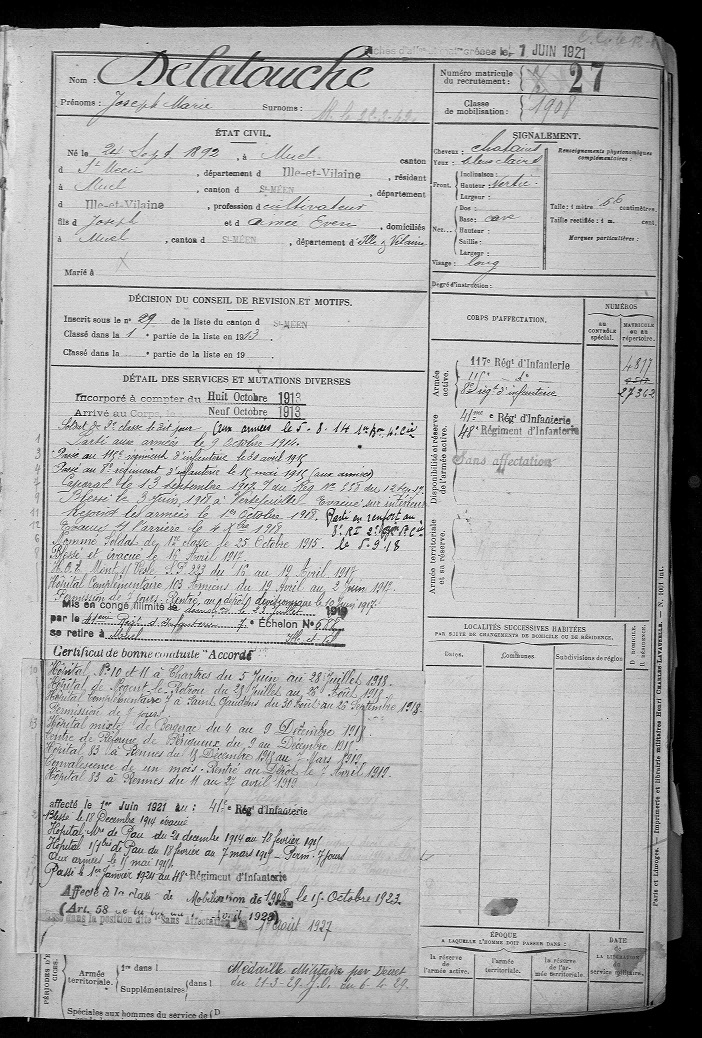 1 JUIN 1921
Nom : Delatouche
Prénoms : Joseph Marie Surnoms :
Numéro matricule du recrutement : 27
Classe de mobilisation : 1908
ÉTAT CIVIL.
Né le 24 Sept 1892, à Muel, canton
d St Méen, département d Ille-et-Vilaine, résidant
à Muel, canton d St-MÉEN, département
d Ille-et-Vilaine, profession d cultivateur
fils d Joseph et d Aimée Even, domiciliés
à Muel, canton d St-MÉEN, département d'Ille & Vilaine
Marié à
SIGNALEMENT.
Cheveux : chatains
Yeux : bleu clairs
Front. Inclinaison :
Hauteur :
Largeur :
Nez... Dos :
Base : cave
Hauteur :
Saillie :
Largeur :
Visage : long
Renseignements physionomiques complémentaires :
Taille : 1 mètre 66 centimètres.
Taille rectifiée : 1 m. cent.
Marques particulières :
Degré d'instruction :
DÉCISION DU CONSEIL DE REVISION ET MOTIFS.
Inscrit sous le n° 29 de la liste du canton d St-MÉEN
Classé dans la 1 partie de la liste en 1913
Classé dans la partie de la liste en 19
DÉTAIL DES SERVICES ET MUTATIONS DIVERSES
Incorporé à compter du Huit Octobre 1913
Arrivé au Corps, le Neuf Octobre 1913
Soldat de 2e classe le dit jour (aux armées le 5.8.14
Parti aux armées le 9 octobre 1914
Passé au 115e régiment d'infanterie le
Passé au 8e régiment d'infanterie le 16 mai 1915 (aux armées)
Caporal le 13 septembre 1917
Blessé le 3 juin 1918 à Vertefeuille Evacué sur intérieur
Rejoint les armées le 1er Octobre 1918. Parti en renfort au
Evacué le 4 Xbre 1918 8e RI
Nommé Soldat de 1e classe le 25 Octobre 1915. le 5-9-18
Blessé et évacué le 16 Avril 1917
du 16 au 19 Avril 1917
Hôpital Complémentaire 103 Amiens du 19 Avril au 2 Juin 1917.
Permission de 7 jours. Rentré au dépôt
Mis en congé illimité le 1919
par le 41eme Régt d'Infanterie 7e Échelon N°
se retire à Muel
Certificat de bonne conduite "Accordé"
Hôpital Nos 10 et 11 à Chartres du 5 Juin au 28 Juillet 1918.
Hôpital de Nogent-le-Rotrou du 28 Juillet au 26 Août 1918.
Hôpital Complémentaire 7 à Saint Gaudens du 30 Août au 26 Septembre 1918.
Permission de 7 jours.
Hôpital mixte de Bergerac du 4 au 9 Décembre 1918.
Centre de Réserve de Périgueux du 9 au Décembre 1918.
Hôpital 83 à Rennes du 18 Décembre 1918 au 7 Mars 1919.
Convalescence de un mois. Rentré au Dépôt le 7 Avril 1919.
Hôpital 83 à Rennes du 11 au 22 avril 1919
affecté le 1er Juin 1921 au : 41e Régt d'Infanterie
Blessé le 18 Decembre 1914 évacué
Hôpital Mre de Pau du 21 decembre 1914 au 18 février 1915
Hôpital de Pau du 18 février au 7 mars 1915 - Perm: 7 jours
Aux armées le 17 mai 1915
Passé le 1er Janvier 1924 au 48e Régiment d'Infanterie
Affecté à la classe de Mobilisation de 1908 le 15 Octobre 1923
(Art. 58
dans la position dite "Sans Affectation" 1er Août 1927
CORPS D'AFFECTATION.
NUMÉROS
AU CONTRÔLE SPÉCIAL.
MATRICULE ou au RÉPERTOIRE.
Armée active.
117e Régt d'Infanterie 4817
115e do
8e régt d'infanterie 27362
Disponibilité et réserve de l'armée active.
41me Régt d'Infanterie
48e Régiment d'Infanterie
Sans affectation
Armée territoriale et sa réserve.
LOCALITÉS SUCCESSIVES HABITÉES
PAR SUITE DE CHANGEMENTS DE DOMICILE OU DE RÉSIDENCE.
Dates. Communes Subdivisions de région D. DOMICILE. R. RÉSIDENCE.
ÉPOQUE
A LAQUELLE L'HOMME DOIT PASSER DANS :
la réserve de l'armée active. l'armée territoriale. la réserve de l'armée territoriale.
DATE DE LA LIBÉRATION du service militaire.
Paris et Limoges. — Imprimerie et librairie militaires Henri CHARLES-LAVAUZELLE.
Armée territoriale. 1re dans l
Supplémentaires dans l
Médaille Militaire par Décret
du 21-3-29 J.O. du 6-4-29.
Spéciales aux hommes du service de